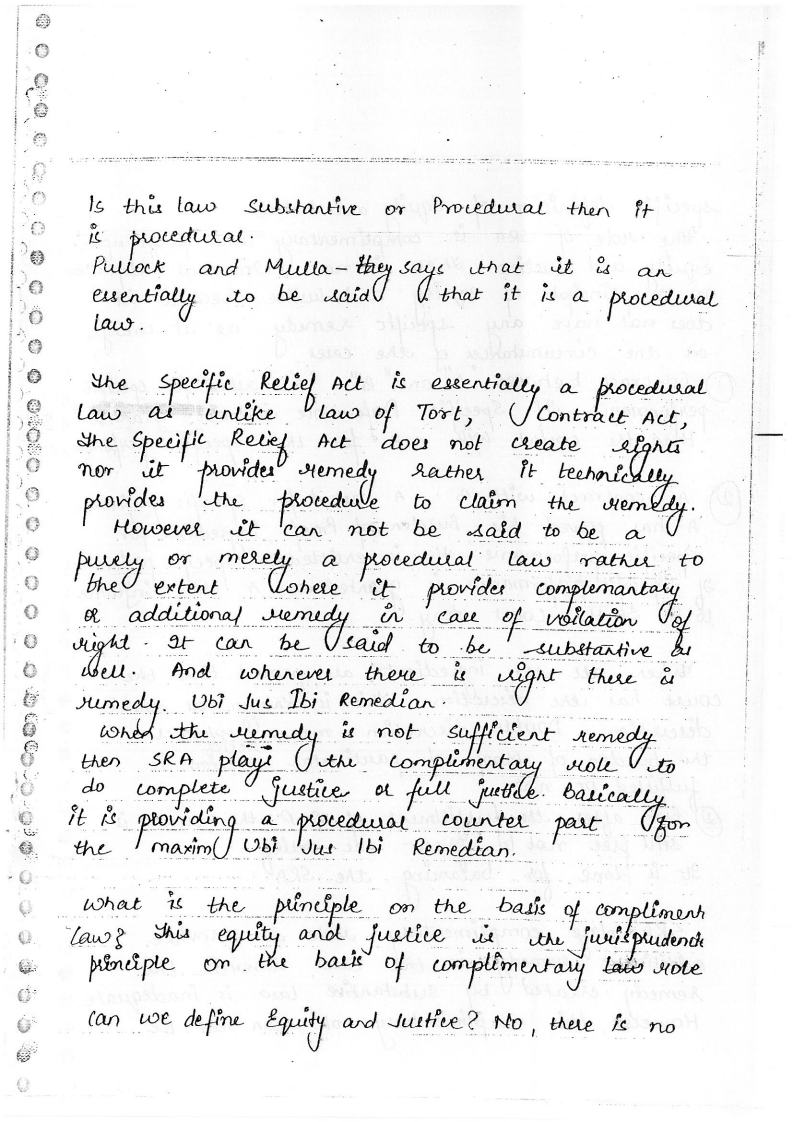 Is this law substantive or Procedural then it
is procedural.
Pullock and Mulla - they says that it is an
essentially to be said that it is a procedural
law.
The Specific Relief Act is essentially a procedural
law as unlike law of Tort, Contract Act,
The Specific Relief Act does not create rights
nor it provides remedy rather it technically
provides the procedure to claim the remedy.
However it can not be said to be a
purely or merely a procedural law rather to
the extent where it provides complemantary
or additional remedy in case of voilation of
right. It can be said to be substantive as
well. And whenever there is right there is
remedy. Ubi Jus Ibi Remedian.
When the remedy is not sufficient remedy
then SRA plays the complimentary role to
do complete justice or full justice. Basically
it is providing a procedural counter part for
the maxim Ubi Jus Ibi Remedian.
What is the principle on the basis of compliment
law? This equity and justice is the jurisprudence
principle on the basis of complimentary law role
Can we define Equity and Justice? No, there is no